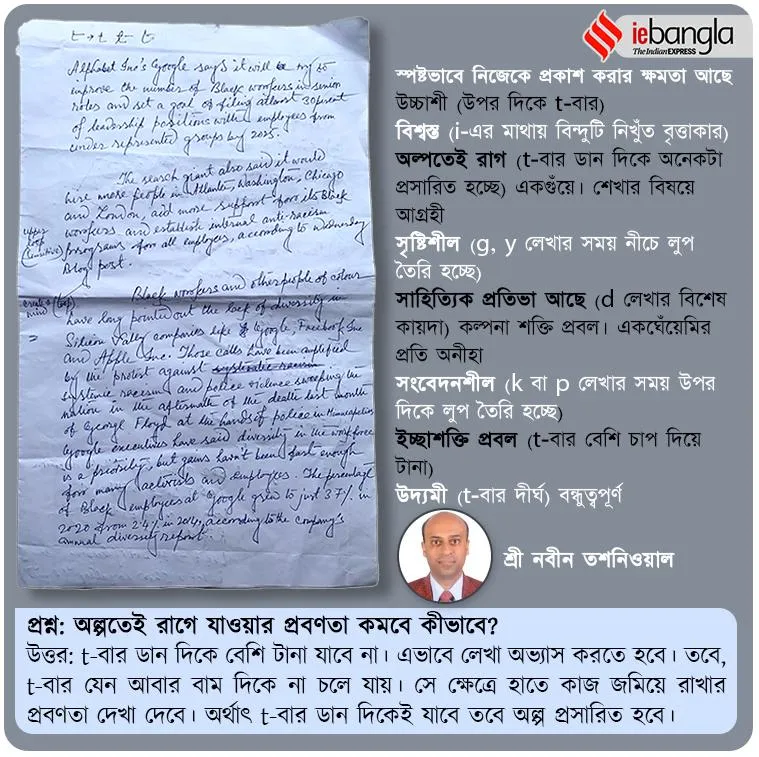 t → t t t
Alphabet Inc's Google says it will be try to
improve the number of Black workers in senior
roles and set a goal of filing atmost 30 percent
of leadership positions with employees from
under represented groups by 2025.
The search giant also said it would
hire more people in Atlanta, Washington, Chicago
and London, aid more support for its Black
workers, and establish internal anti-racism
programs for all employees, according to Wednesday
Blog post.
upper
loop
(sensitive)
Black workers and other people of colour
have long pointed out the lack of diversity in
Silicon Valley companies like Google, Facebook Inc
and Apple Inc. Those calls have been amplified
by the protest against systematic racism
systemic racism and police violence sweeping the
nation in the aftermath of the death last month
of George Floyd at the hands of police in Minneapolis
Google executives have said diversity in the workforce
is a priority, but gains haven't been fast enough
for many activists and employees. The percentage
of Black employees at Google grew to just 3.7% in
2020 from 2.4% in 2014, according to the company's
annual diversity report.
iebangla
The Indian EXPRESS
স্পষ্টভাবে নিজেকে প্রকাশ করার ক্ষমতা আছে
উচ্চাশী (উপর দিকে t-বার)
বিশ্বস্ত (i-এর মাথায় বিন্দুটি নিখুঁত বৃত্তাকার)
অল্পতেই রাগ (t-বার ডান দিকে অনেকটা
প্রসারিত হচ্ছে) একগুঁয়ে। শেখার বিষয়ে
আগ্রহী
সৃষ্টিশীল (g, y লেখার সময় নীচে লুপ
তৈরি হচ্ছে)
সাহিত্যিক প্রতিভা আছে (d লেখার বিশেষ
কায়দা) কল্পনা শক্তি প্রবল। একঘেঁয়েমির
প্রতি অনীহা
সংবেদনশীল (k বা p লেখার সময় উপর
দিকে লুপ তৈরি হচ্ছে)
ইচ্ছাশক্তি প্রবল (t-বার বেশি চাপ দিয়ে
টানা)
উদ্যমী (t-বার দীর্ঘ) বন্ধুত্বপূর্ণ
শ্রী নবীন তশনিওয়াল
প্রশ্ন: অল্পতেই রাগে যাওয়ার প্রবণতা কমবে কীভাবে?
উত্তর: t-বার ডান দিকে বেশি টানা যাবে না। এভাবে লেখা অভ্যাস করতে হবে। তবে,
t-বার যেন আবার বাম দিকে না চলে যায়। সে ক্ষেত্রে হাতে কাজ জমিয়ে রাখার
প্রবণতা দেখা দেবে। অর্থাৎ t-বার ডান দিকেই যাবে তবে অল্প প্রসারিত হবে।